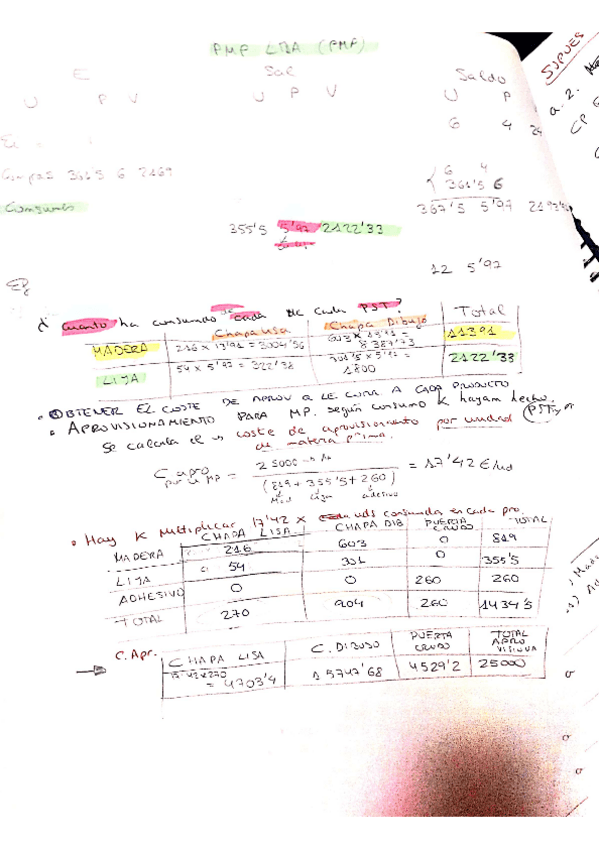 PMP LIJA (PMP)
E Sal Saldo
U P V U P V U P
6 4 24
Compras 361'5 6 2169
6 4
361'5 6
Consumo 367'5 5'97
355'5 5'97 2122'33
12 5'97
¿Cuanto ha consumido de cada PST?
Chapa Lisa Chapa Dibujo Total
MADERA 216 x 13'91 = 3004'56 603 x 13'91 = 8387'73 11391
LIJA 54 x 5'97 = 322'38 301'5 x 5'97 = 1800 2122'33
• OBTENER EL COSTE DE APROV A CADA PRODUCTO
• APROVISIONAMIENTO PARA MP. según consumo k hayam hecho. (PST y PT
Se calcula el coste de aprovisionamiento por unidad
de materia prima.
C apro por u MP = 25000 / (819 + 355'5 + 260) = 17'42 €/ud
Mad Lija adesivo
• Hay k multiplicar 17'42 x uds consumidas en cada pro.
CHAPA LISA CHAPA DIB PUERTA CRUDO TOTAL
MADERA 216 603 0 819
LIJA 54 301 0 355'5
ADHESIVO 0 0 260 260
TOTAL 270 904 260 1434'5
C. Apr. CHAPA LISA C. DIBUJO PUERTA CRUDO TOTAL APRO
17'42 x 270 = 4703'4 15747'68 4529'2 25000
SUPUES
a. 2.
CP